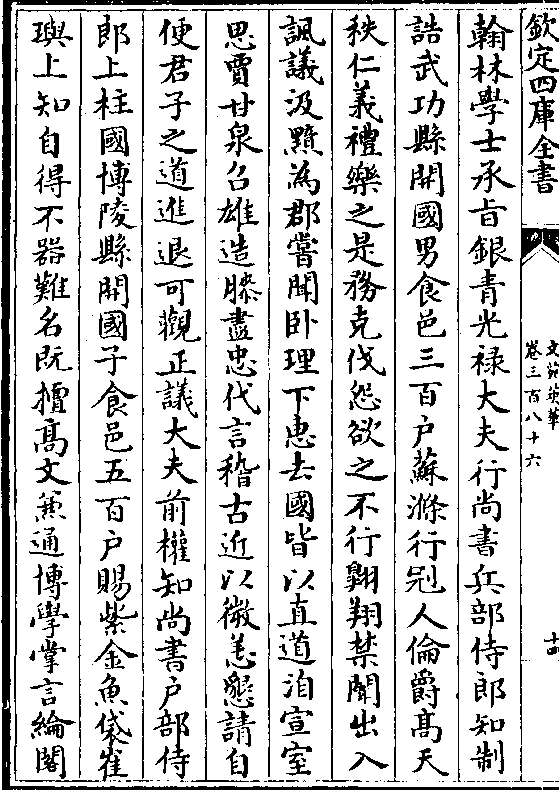 欽定四庫全書
文苑英華
卷三百八十六
十四
翰林學士承旨銀青光禄大夫行尚書兵部侍郎知制
誥武功縣開國男食邑三百户蘇滌行冠人倫爵髙天
秩仁義禮樂之是務克伐怨欲之不行翺翔禁闈出入
諷議汲黯為郡嘗聞卧理下惠去國皆以直道洎宣室
思賈甘泉召雄造膝盡忠代言稽古近以微恙懇請自
便君子之道進退可觀正議大夫前權知尚書户部侍
郎上柱國博陵縣開國子食邑五百户賜紫金魚袋崔
璵上知自得不器難名既擅髙文兼通博學掌言綸閣